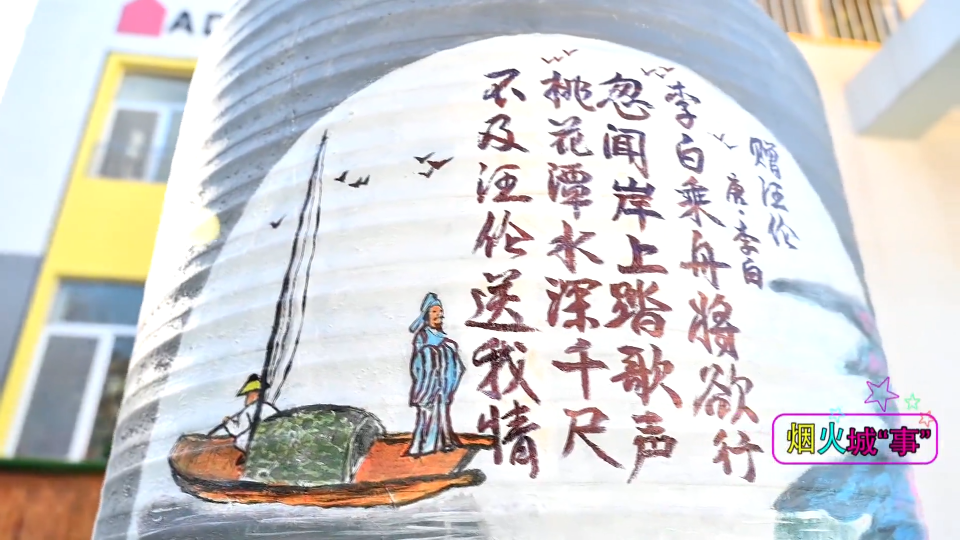 赠汪伦
唐·李白
李白乘舟将欲行
忽闻岸上踏歌声
桃花潭水深千尺
不及汪伦送我情
烟火城“事”